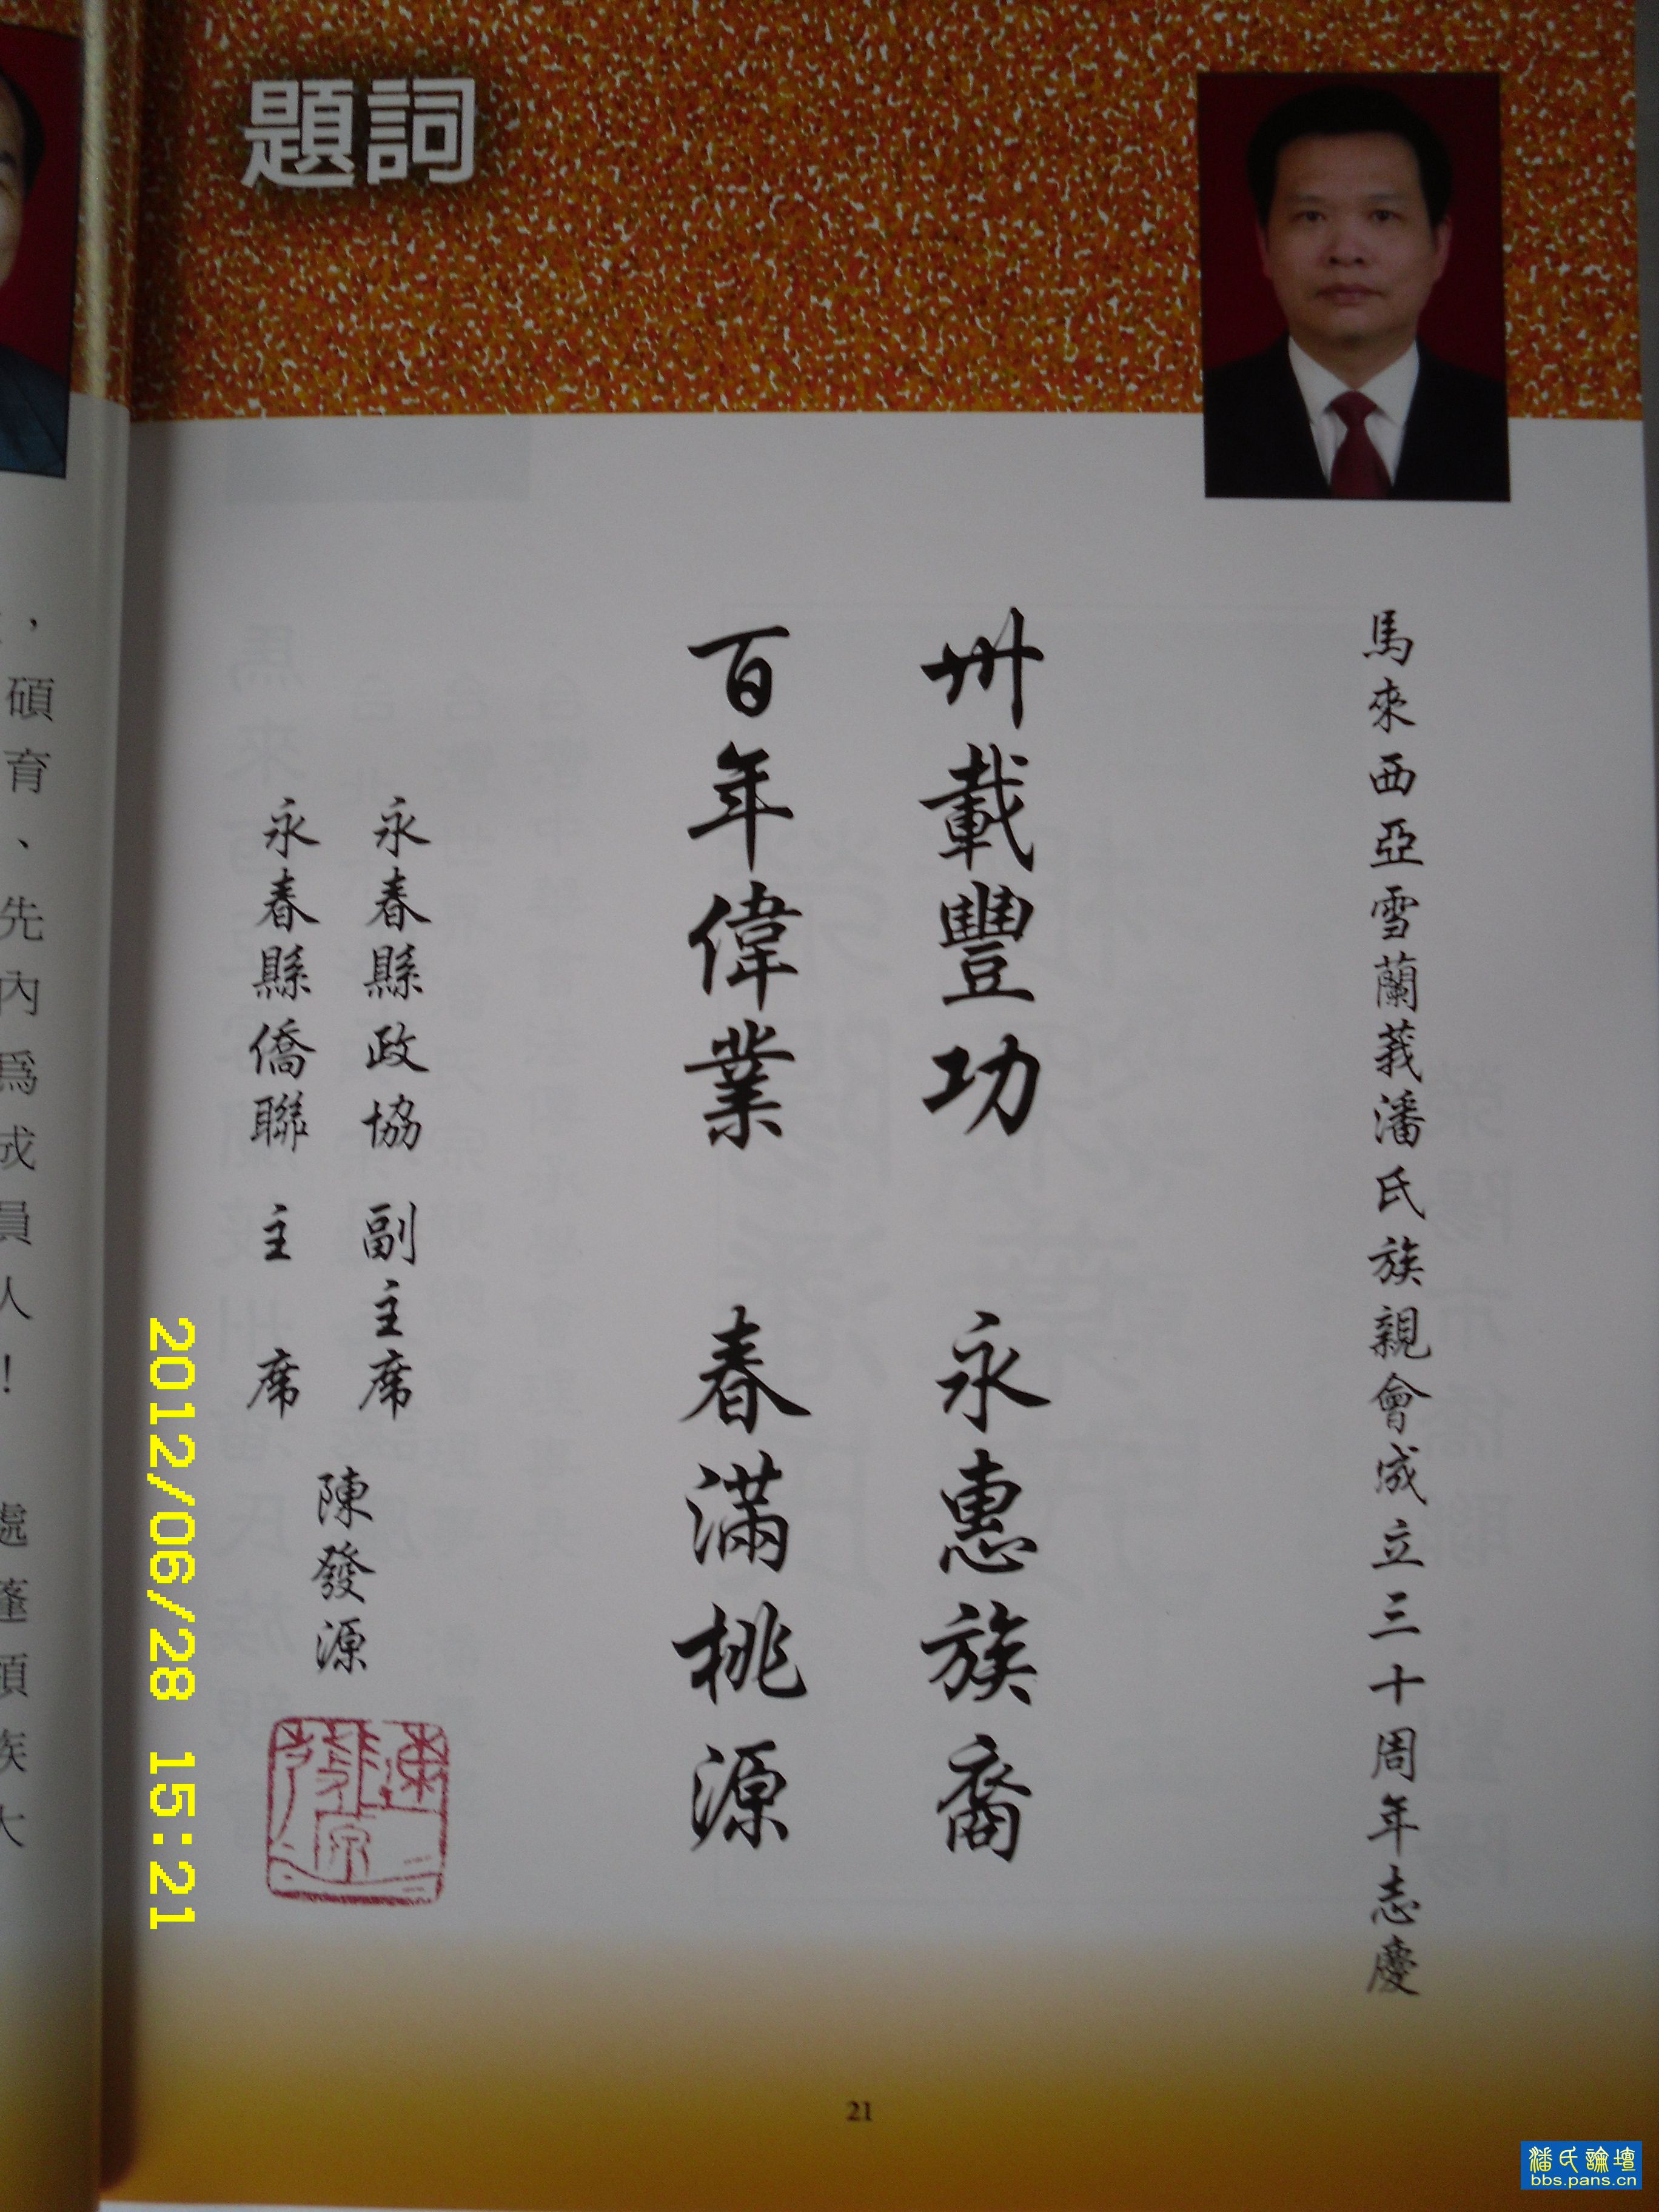 題詞
馬來西亞雪蘭莪潘氏族親會成立三十周年志慶
卅載豐功 永惠族裔
百年偉業 春滿桃源
永春縣政協 副主席
永春縣僑聯 主席
陳發源
，
碩
育
、
先
內
爲
成
員
人
！
處
蓬
項
族
大
2012/06/28 15:21
21
潘氏論壇
bbs.pans.cn